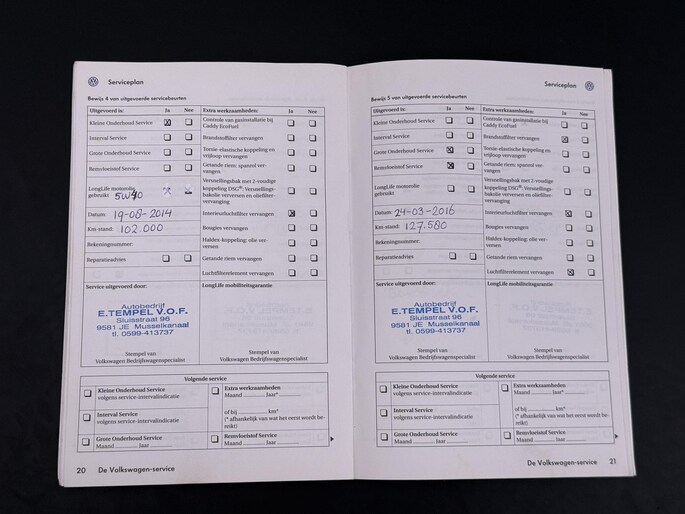 Serviceplan
Bewijs 4 van uitgevoerde servicebeurten
Uitgevoerd is: Ja Nee Extra werkzaamheden: Ja Nee
Kleine Onderhoud Service Controle van gasinstallatie bij
Caddy EcoFuel
Interval Service Brandstoffilter vervangen
Grote Onderhoud Service Torsie-elastische koppeling en
vrijloop vervangen
Remvloeistof Service Getande riem: spanrol ver-
vangen
LongLife motorolie
gebruikt 5W40
Versnellingsbak met 2-voudige
koppeling DSG®: Versnellings-
bakolie verversen en oliefilter-
vervanging
Datum: 19-08-2014 Interieurluchtfilter vervangen
Km-stand: 102.000 Bougies vervangen
Rekeningnummer: Haldex-koppeling: olie ver-
versen
Reparatieadvies Getande riem vervangen
Luchtfilterelement vervangen
Service uitgevoerd door: LongLife mobiliteitsgarantie
Autobedrijf
E.TEMPEL V.O.F.
Sluisstraat 96
9581 JE Musselkanaal
tl. 0599-413737
Stempel van Stempel van
Volkswagen Bedrijfswagenspecialist Volkswagen Bedrijfswagenspecialist
Volgende service
Kleine Onderhoud Service
volgens service-intervalindicatie
Extra werkzaamheden
Maand ............ Jaar*
Interval Service
volgens service-intervalindicatie
of bij ............ km*
(* afhankelijk van wat het eerst wordt be-
reikt)
Grote Onderhoud Service
Maand ............ Jaar ............
Remvloeistof Service
Maand ............ Jaar ............
20 De Volkswagen-service
Serviceplan
Bewijs 5 van uitgevoerde servicebeurten
Uitgevoerd is: Ja Nee Extra werkzaamheden: Ja Nee
Kleine Onderhoud Service Controle van gasinstallatie bij
Caddy EcoFuel
Interval Service Brandstoffilter vervangen
Grote Onderhoud Service Torsie-elastische koppeling en
vrijloop vervangen
Remvloeistof Service Getande riem: spanrol ver-
vangen
LongLife motorolie
gebruikt
Versnellingsbak met 2-voudige
koppeling DSG®: Versnellings-
bakolie verversen en oliefilter-
vervanging
Datum: 24-03-2016 Interieurluchtfilter vervangen
Km-stand: 127.580 Bougies vervangen
Rekeningnummer: Haldex-koppeling: olie ver-
versen
Reparatieadvies Getande riem vervangen
Luchtfilterelement vervangen
Service uitgevoerd door: LongLife mobiliteitsgarantie
Autobedrijf
E.TEMPEL V.O.F.
Sluisstraat 96
9581 JE Musselkanaal
tl. 0599-413737
Stempel van Stempel van
Volkswagen Bedrijfswagenspecialist Volkswagen Bedrijfswagenspecialist
Volgende service
Kleine Onderhoud Service
volgens service-intervalindicatie
Extra werkzaamheden
Maand ............ Jaar*
Interval Service
volgens service-intervalindicatie
of bij ............ km*
(* afhankelijk van wat het eerst wordt be-
reikt)
Grote Onderhoud Service
Maand ............ Jaar ............
Remvloeistof Service
Maand ............ Jaar ............
De Volkswagen-service 21